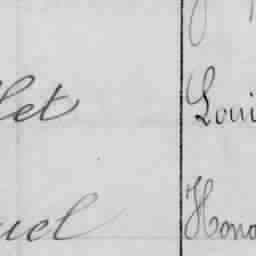 let Loui
uel Hono